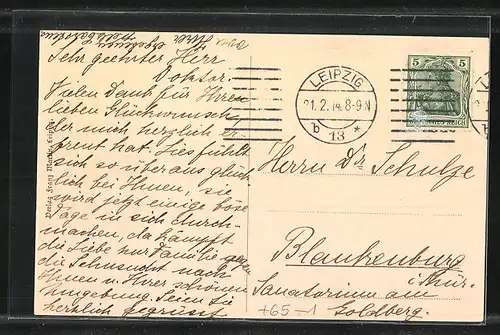 Sehr geehrter Herr
Doktor.
Vielen Dank für Ihren
lieben Glückwunsch,
der mich herzlich er-
freut hat. Lies fühlt
sich so überaus glück-
lich bei Ihnen, sie
wird jetzt einige böse
Tage in sich durch-
machen, da kämpft
die Liebe zur Familie gegen
die Sehnsucht nach
Ihnen u. Ihrer schönen
Umgebung. Seien Sie
herzlich gegrüsst
Verlag Franz Leipzig
LEIPZIG
2.14.8-9N
b 13 *
5 5
DEUTSCHES REICH
Herrn Dr Schulze
Blankenburg
i. Thür.
Sanatorium am
Goldberg.
+65-1